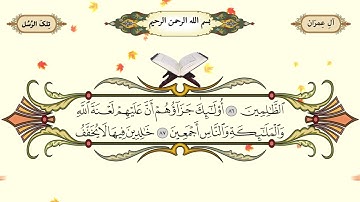 آلِ عِمرَان
بسم الله الرحمن الرحيم
تِلكَ الرُّسُل
ٱلظَّـٰلِمِينَ ٨٦ أُو۟لَـٰٓئِكَ جَزَآؤُهُمْ أَنَّ عَلَيْهِمْ لَعْنَةَ ٱللَّهِ
وَٱلْمَلَـٰٓئِكَةِ وَٱلنَّاسِ أَجْمَعِينَ ٨٧ خَـٰلِدِينَ فِيهَا لَا يُخَفَّفُ